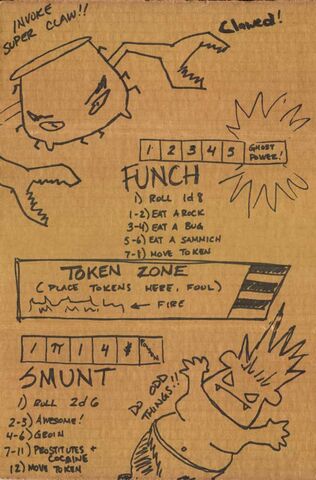 INVOKE
SUPER CLAW!!
Clawed!
1 2 3 4 5 GHOST
POWER!
FUNCH
1) ROLL 1d8
1-2) EAT A ROCK
3-4) EAT A BUG
5-6) EAT A SAMMICH
7-8) MOVE TOKEN
TOKEN ZONE
(PLACE TOKENS HERE, FOOL)
← FIRE
1 π 1 4 $
SMUNT
1) ROLL 2d6
2-3) AWESOME!
4-6) GROIN
7-11) PROSTITUTES +
COCAINE
12) MOVE TOKEN
DO ODD
THINGS!!